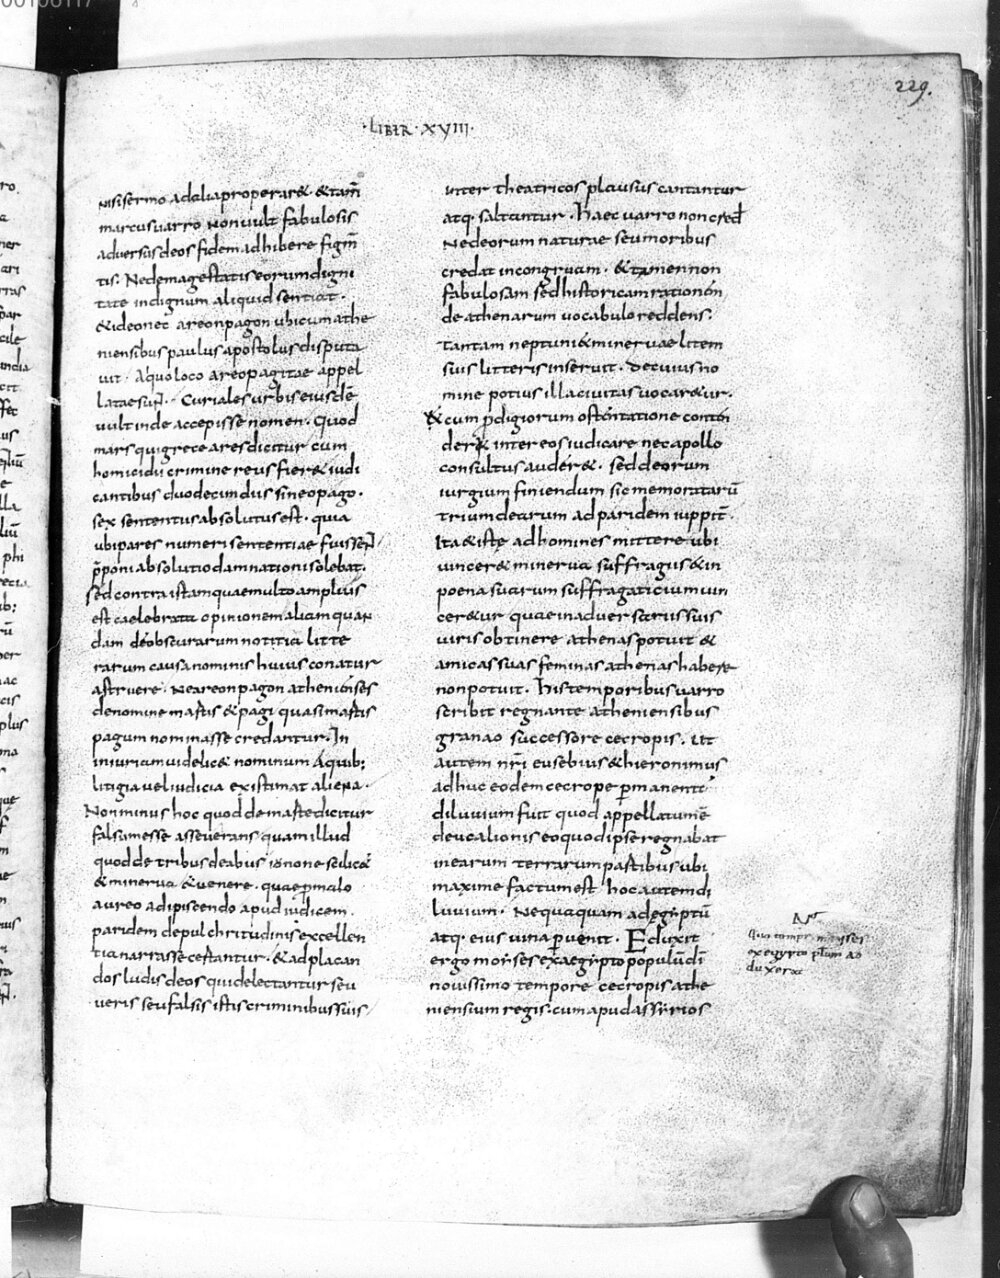 229.
·LIBER·XVIII·
nisi sermo ad alia properar&. &tam̄
marcus uarro non uult fabulosis
aduersus deos fidem adhibere figm̄
tis. Ne de magestatis eorum digni
tate indignum aliquid sentiat.
& ideo nec areonpagon ubi cum athe
niensibus paulus apostolus disputa
uit. A quo loco areopagitae appel
latae sun̄. Curiales urbis eiusdē
uult inde accepisse nomen. Quod
mars qui grece ares dicitur cum
homicidii crimine reus fier& iudi
cantibus duodecim diis sineopago.
sex sententiis absolutus est. quia
ubi pares numeri sententiae fuissen̄
p̄poni absolutio damnationi solebat.
sed contra istam quae multo amplius
est caelebrata opinionem aliam quan
dam de obscurarum notitia litte
rarum causa nominis huius conatur
astruere. Ne areonpagon athenienses
de nomine mastis & pagi quasi mastis
pagum nominasse credantur. In
iniuriam uidelic& nominum A quib;
litigia uel iudicia existimat aliena.
Non minus hoc quod de maste dicitur
falsum esse asseuerans quam illud
quod de tribus deabus iunone sedic&
& minerua & uenere. quae p malo
aureo adipiscendo apud iudicem
paridem de pulchritudinis excellen
tia narrasse cestantur. & ad placan
dos ludis deos qui delectantur seu
ueris seu falsis istis criminibus suis
inter theatricos plausus cantantur
atq. saltantur. Haec uarro non cred̄
Ne deorum naturae seu moribus
credat incongruam. & tamen non
fabulosam sed historicam rationem
de athenarum uocabulo reddens.
Tantam neptuni & mineruae litem
suis litteris inseruit. De cuius no
mine potius illa ciuitas uocar&ur.
& cum p̄digiorum ostentatione conten
der& inter eos iudicare nec apollo
consultus auder&. sed deorum
iurgium finiendum sic memoratarū
trium dearum ad paridem iuppit̄.
Ita & iste ad homines mittere ubi
uincer& minerua suffragiis & in
poena suarum suffragaticium uin
cer&ur quae in aduersariis suis
uiris obtinere athenas potuit &
amicas suas feminas athenas habere
non potuit. His temporibus uarro
scribit regnante atheniensibus
granao successore cecropis. Ut
autem nr̄i eusebius & hieronimus
adhuc eodem cecrope pmanente
diluuium fuit quod appellatum ē
deucalionis eo quod ipse regnabat
in earum terrarum pastibus ubi
maxime factum est. hoc autem di
luuium. Nequaquam ad egiptū
atq. eius uina puenit. Eduxit
ergo moises ex aegipto populū di
nouissimo tempore cecropis athe
niensium regis. cum apud assirios
Quo tempr moises
ex egypto plum
duxerat